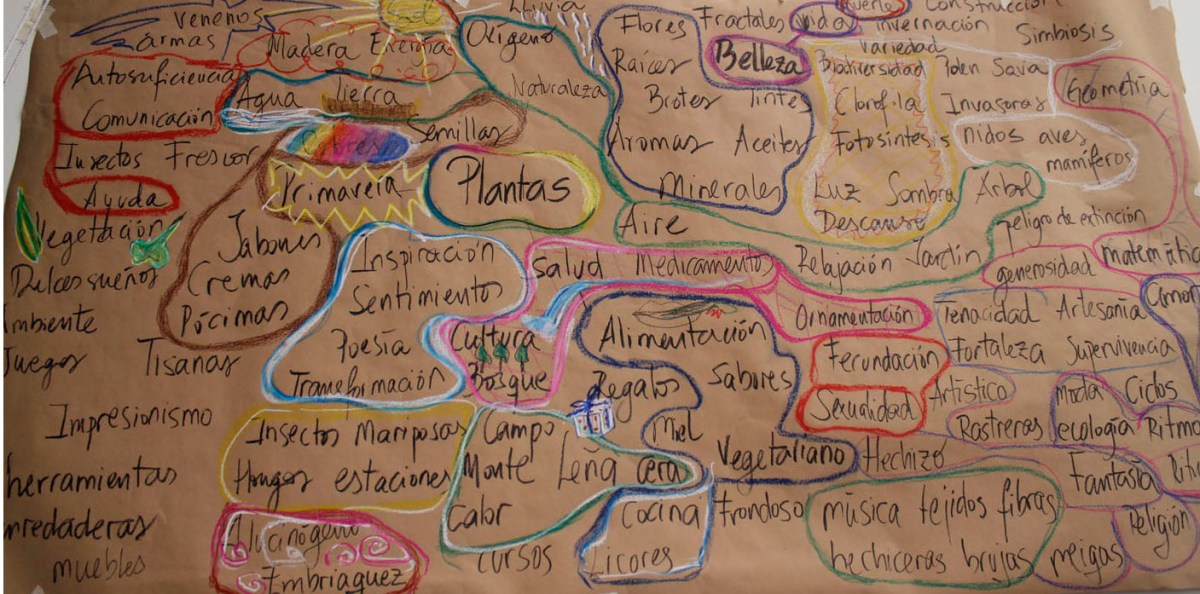 venenos
armas
Madera Energía
sol
Oxígeno
Lluvia
Naturaleza
Flores Fractales
Raíces
Belleza
Brotes Tintes
Aromas Aceites
Minerales
Aire
Construcción
invernación
Simbiosis
Variedad
Biodiversidad Polen Savia
Clorofila Invasoras
Fotosíntesis
Luz Sombra Árbol
Descanso
Geometría
nidos aves
mamíferos
Autosuficiencia
Comunicación
Agua Tierra
Semillas
Insectos Frescor
Ayuda
Primavera
Plantas
Vegetación
Dulces sueños
Jabones
Cremas
Pócimas
Juegos Tisanas
Inspiración
Sentimientos
Poesía
Transformación
Salud Medicamentos
Relajación Jardín
peligro de extinción
generosidad
Cultura
Bosque
Alimentación
Regalos Sabores
Miel
Vegetariano
Ornamentación
Fecundación
Sexualidad
Tenacidad Artesanía
Fortaleza Supervivencia
Artístico
Rastreras
Moda Ciclos
ecología
Impresionismo
herramientas
muebles
Insectos Mariposas
Hongos estaciones
Campo
Monte Leña cera
Calor
cursos
Alucinógeno
Embriaguez
Cocina
Licores
Frondoso
Hechizo
Fantasía
música tejidos fibras
hechiceras brujas meigas
Religión